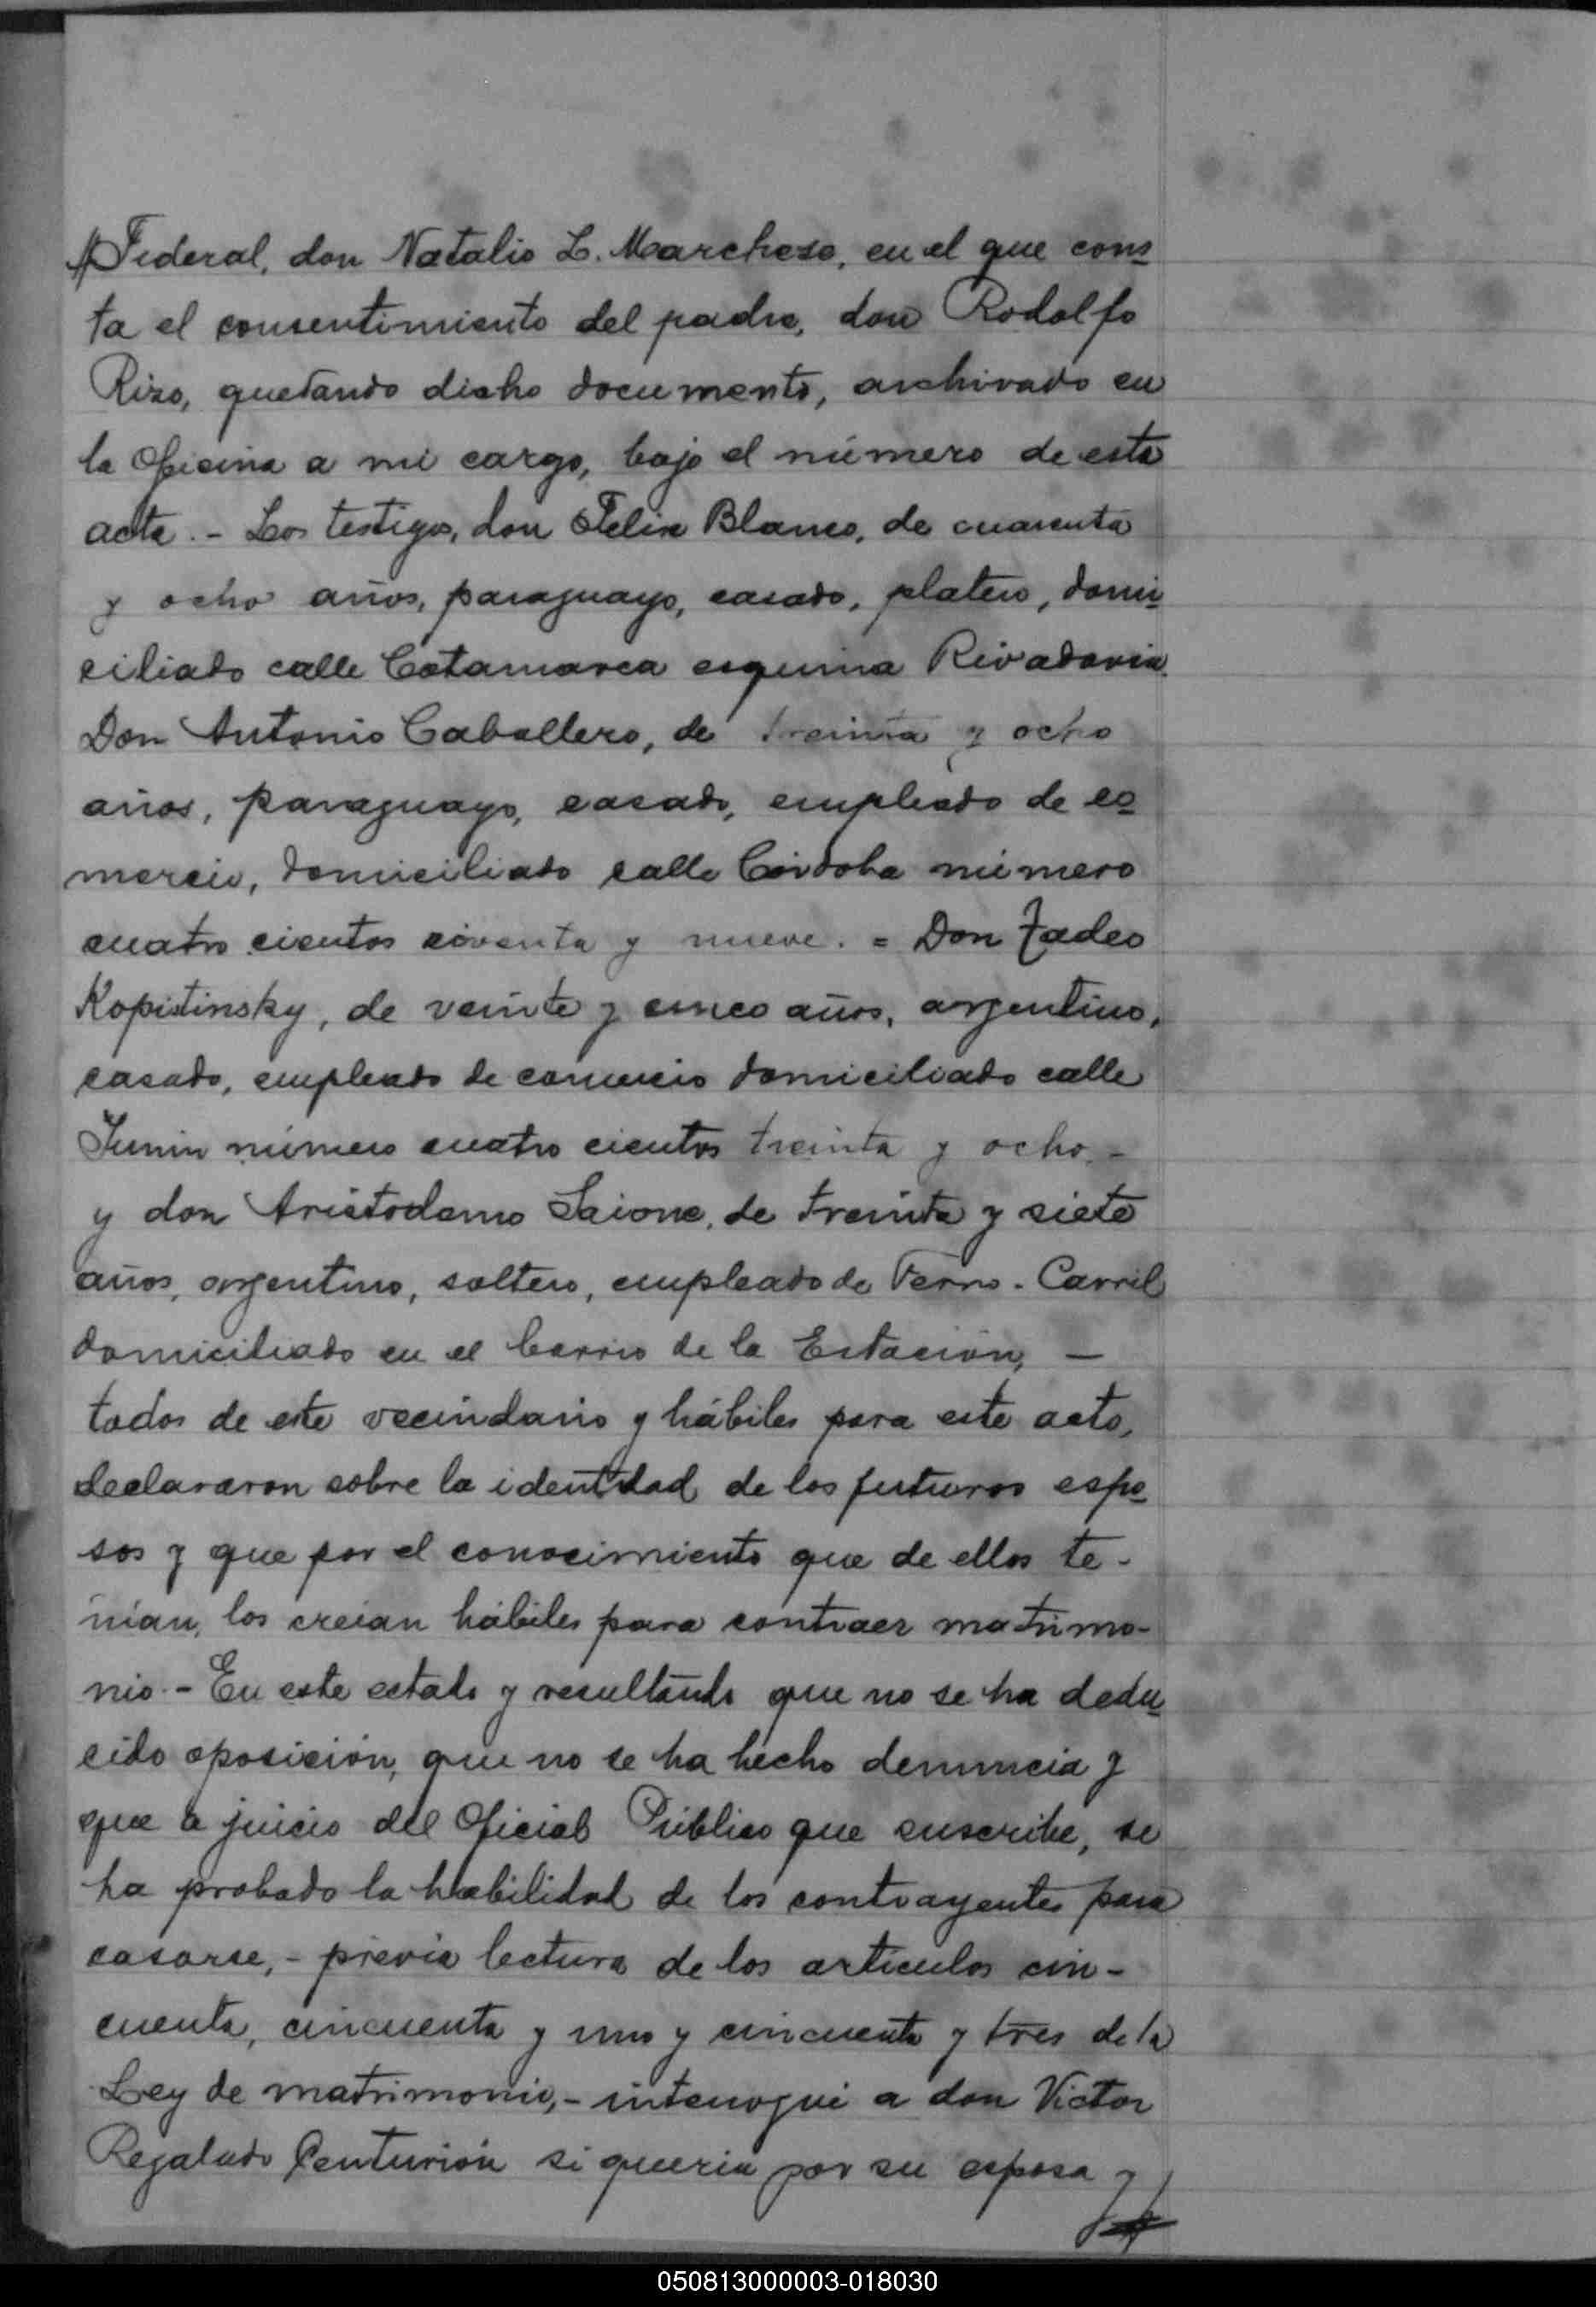 //Federal, don Natalio L. Marchese, en el que cons
ta el consentimiento del padre, don Rodolfo
Rizo, quedando dicho documento, archivado en
la Oficina a mi cargo, bajo el número de esta
acta. - Los testigos, don Felix Blanco, de cuarenta
y ocho años, paraguayo, casado, platero, domi
ciliado calle Catamarca esquina Rivadavia.
Don Antonio Caballero, de treinta y ocho
años, paraguayo, casado, empleado de co
mercio, domiciliado calle Córdoba número
cuatro cientos y nueve. = Don Tadeo
Kopistinsky, de veinte y cinco años, argentino,
casado, empleado de comercio domiciliado calle
Junin número cuatro cientos treinta y ocho. -
y don Aristodemo Saione, de treinta y siete
años, argentino, soltero, empleado de Ferro-Carril
domiciliado en el barrio de la Estación, —
todos de este vecindario y hábiles para este acto,
declararon sobre la identidad de los futuros espo
sos y que por el conocimiento que de ellos te-
nían, los creían hábiles para contraer matrimo-
nio. - En este estado y resultando que no se ha dedu
cido oposición, que no se ha hecho denuncia y
que a juicio del Oficial Público que suscribe, se
ha probado la habilidad de los contrayentes para
casarse, - previa lectura de los artículos cin-
cuenta, cincuenta y uno y cincuenta y tres de la
Ley de matrimonio, - interrogué a don Victor
Regalado Centurión si queria por su esposa y
050813000003-018030